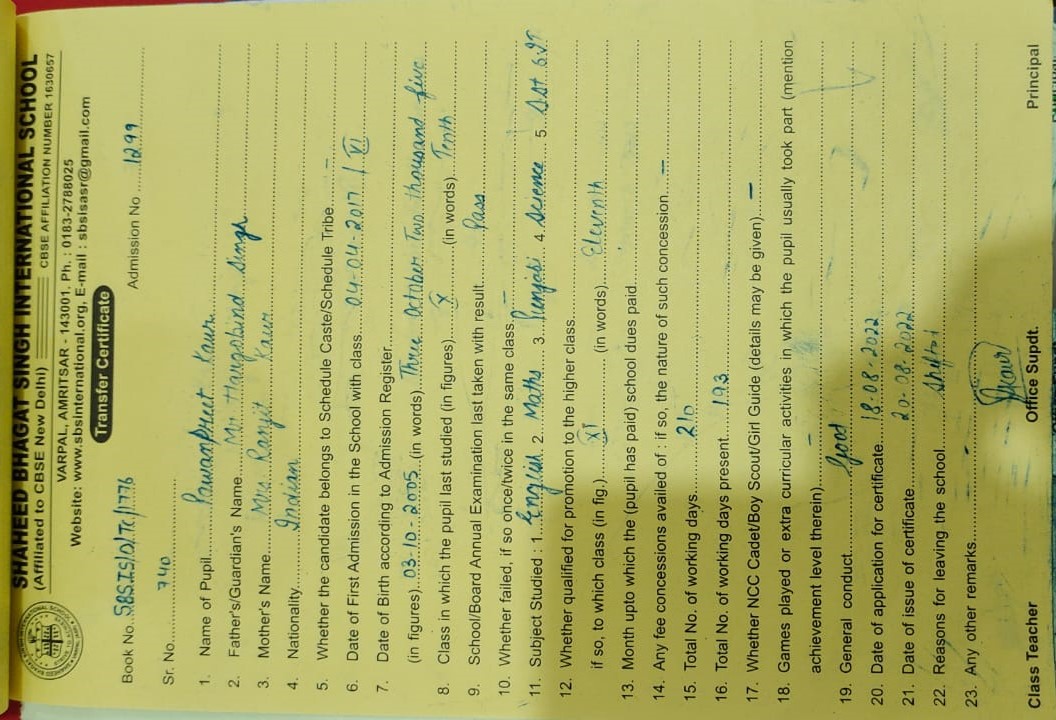 SHAHEED BHAGAT SINGH INTERNATIONAL SCHOOL
(Affiliated to CBSE New Delhi) CBSE AFFILIATION NUMBER 1630657
VARPAL, AMRITSAR - 143001. Ph. : 0183-2788025
Website: www.sbsinternational.org, E-mail : sbsisasr@gmail.com
Transfer Certificate
Book No. SBSIS/O/TC/1776 Admission No. 1299
Sr. No. 740
1. Name of Pupil Pawanpreet Kaur
2. Father's/Guardian's Name Mr. Hargobind Singh
3. Mother's Name Mrs Ranjit Kaur
4. Nationality Indian
5. Whether the candidate belongs to Schedule Caste/Schedule Tribe –
6. Date of First Admission in the School with class. 04-04-2017 / VI
7. Date of Birth according to Admission Register
(in figures) 03-10-2005 (in words) Three October Two thousand five
8. Class in which the pupil last studied (in figures) X (in words) Tenth
9. School/Board Annual Examination last taken with result. Pass
10. Whether failed, if so once/twice in the same class. –
11. Subject Studied : 1. English 2. Maths 3. Punjabi 4. Science 5. Sst
12. Whether qualified for promotion to the higher class
if so, to which class (in fig.) XI (in words) Eleventh
13. Month upto which the (pupil has paid) school dues paid
14. Any fee concessions availed of : if so, the nature of such concession –
15. Total No. of working days 210
16. Total No. of working days present 193
17. Whether NCC Cadet/Boy Scout/Girl Guide (details may be given) –
18. Games played or extra curricular activities in which the pupil usually took part (mention
achievement level therein) –
19. General conduct Good
20. Date of application for certificate 18-08-2022
21. Date of issue of certificate 20-08-2022
22. Reasons for leaving the school
23. Any other remarks –
Class Teacher Office Supdt. Principal